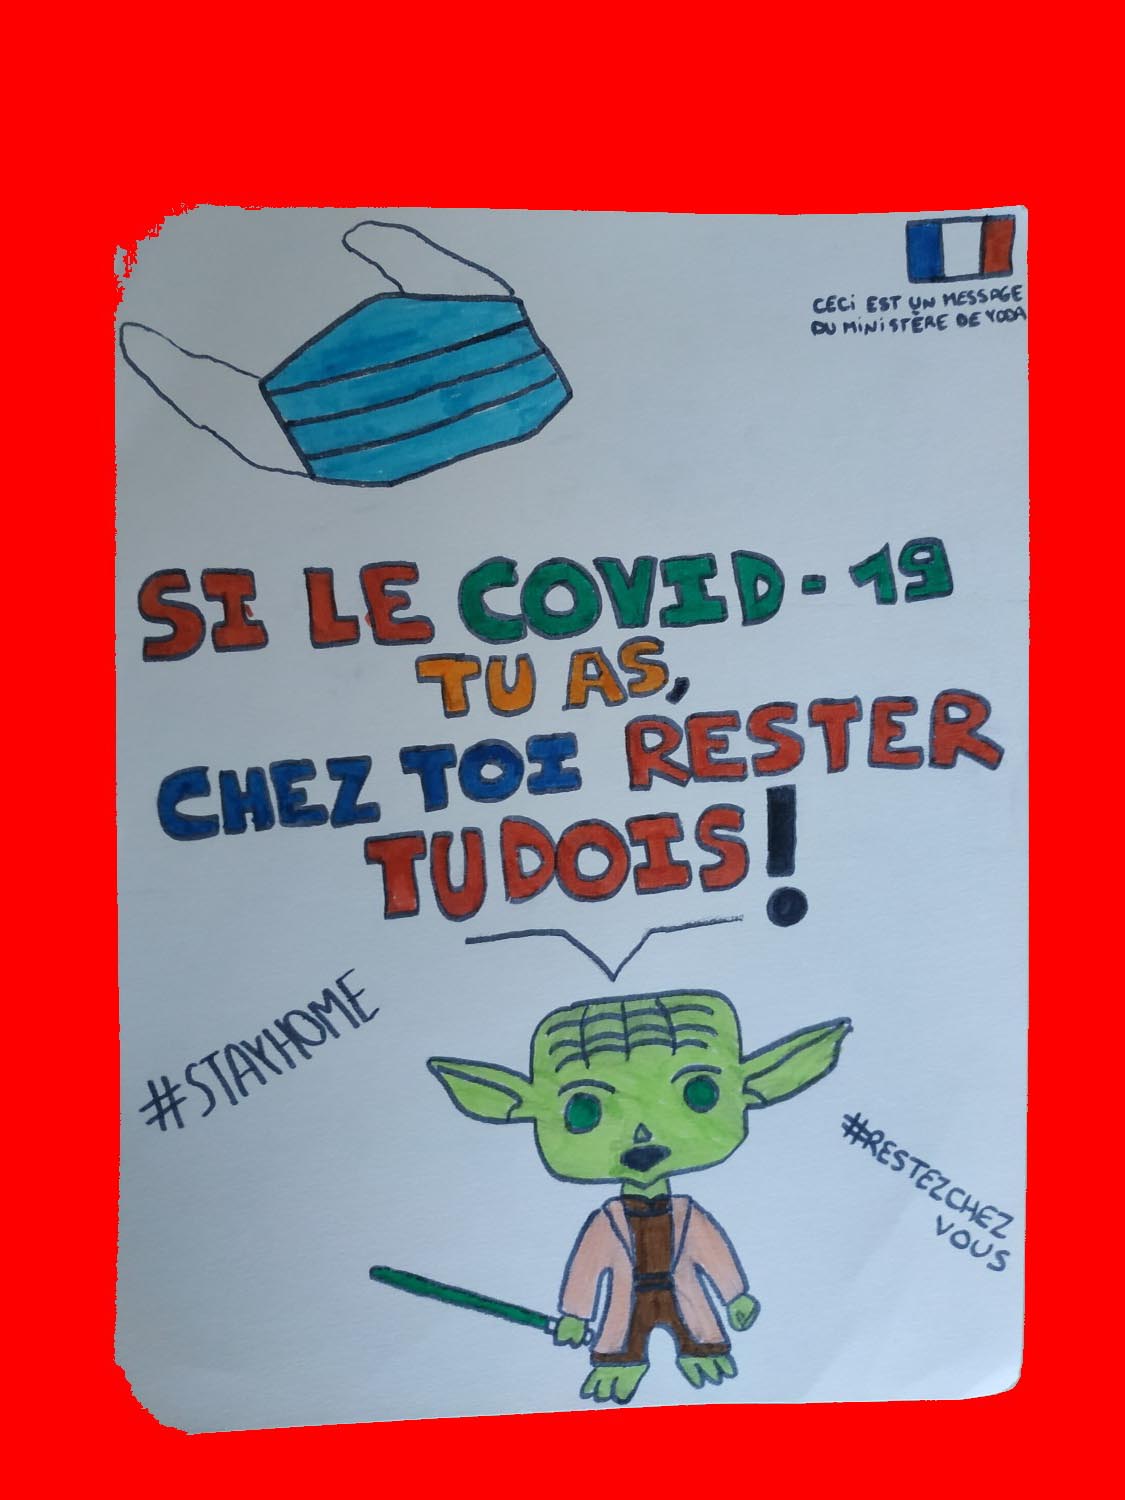 CECI EST UN MESSAGE
DU MINISTÈRE DE YODA
SI LE COVID-19
TU AS,
CHEZ TOI RESTER
TU DOIS!
#STAYHOME
#RESTEZCHEZ
VOUS